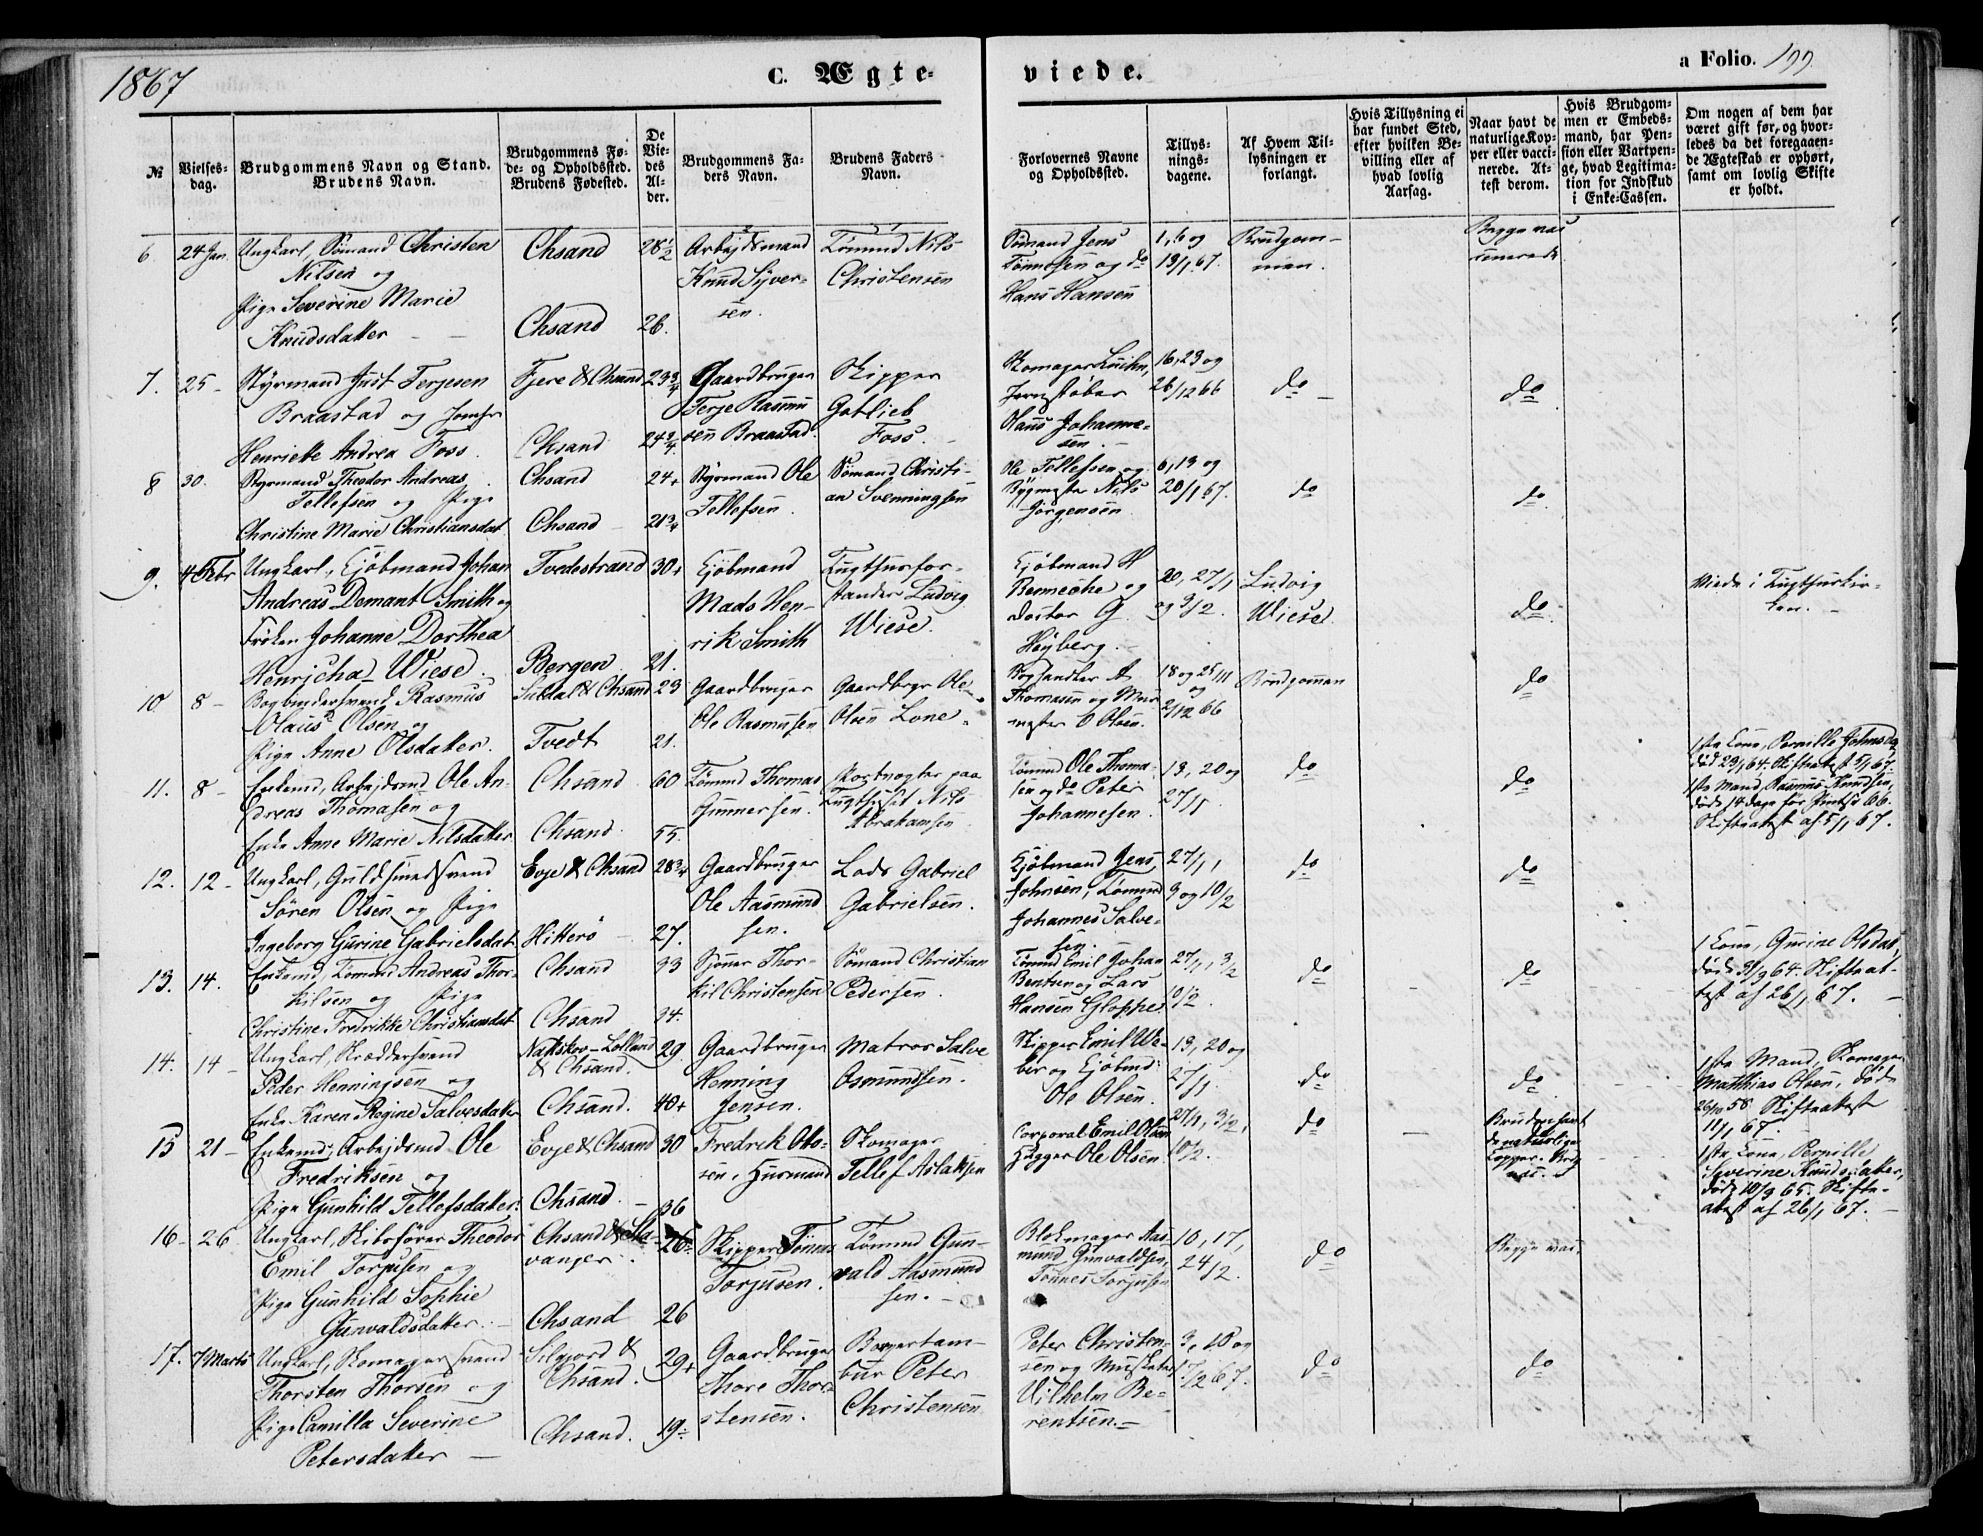 1867
C. Ægte-
viede.
a Folio. 199
№
Vielses-
dag.
Brudgommens Navn og Stand.
Brudens Navn.
Brudgommens Fø-
de- og Opholdssted.
Brudens Fødested.
De
Vie-
des
Al-
der.
Brudgommens Fa-
ders Navn.
Brudens Faders
Navn.
Forlovernes Navne
og Opholdssted.
Tillys-
nings-
dagene.
Af Hvem Til-
lysningen er
forlangt.
Hvis Tillysning ei
har fundet Sted,
efter hvilken Be-
villing eller af
hvad lovlig
Aarsag.
Naar havt de
naturlige Kop-
per eller vacci-
nerede. At-
test derom.
Hvis Brudgom-
men er Embeds-
mand, har Pen-
sion eller Vartpen-
ge, hvad Legitima-
tion for Indskud
i Enke-Cassen.
Om nogen af dem har
været gift før, og hvor-
ledes da det foregaaen-
de Ægteskab er ophørt,
samt om lovlig Skifte
er holdt.
6. 24 Jan. Ungkarl, Sømand Christen
Nilsen og
Pige Severine Marie
Knudsdatter
Chsand 28½
Chsand 26.
Arbejdsmand
Knud Syver-
sen.
Tømmd Nils
Christensen
Sømand Jens
Tønnesen og do
Hans Hansen
1, 6 og
13/1 67.
Brudgom-
men.
Begge vac-
cinerede
7. 25 - Styrmand Just Terjesen
Braastad og Jomfr
Henriette Andrea Foss.
Fjere & Chsand 23¾
Chsand 24¾
Gaardbruger
Terje Rasmu
sen Braastad.
Skipper
Gotlieb
Foss.
Skomager
Jernstøber
Hans Johanne-
sen.
16, 23 og
26/12 66
do
do
8 30. Styrmand Theodor Andreas
Tellefsen og Pige
Christine Marie Christiansdat.
Chsand 24+
Chsand 21¾
Styrmand Ole
Tellefsen.
Sømand Christi-
an Svenningsen
Ole Tellefsen og
Bygmester Nils
Jørgensen
6, 13 og
20/1 67.
do
do
9. 4 Febr Ungkarl, Kjøbmand Johan
Andreas Demant Smith og
Frøken Johanne Dorthea
Henricha Wiese.
Tvedestrand 30+
Bergen 21.
Kjøbmand
Mads Hen-
rik Smith
Tugthusfor-
stander Ludvig
Wiese.
Kjøbmand H
Benneche og
Doctor G.
Høyberg.
20, 27/1
og 3/2.
Ludvig
Wiese
do
Viede i Tugthuskir-
ken.
10. 8 - Bogbindersvend Rasmus
Olaus Olsen og
Pige Anne Olsdatter.
Suldal & Chsand 23
Tvedt 21.
Gaardbruger
Ole Rasmusen
Gaardbrgr Ole
Olsen Lone
Boghandler A
Thomasen og Mur-
mester O Olsen.
18 og 25/11
og
2/12 66
Brudgommen
do
11. 8 - Enkemd, Arbejdsmd Ole An-
dreas Thomasen og
Enke Anne Marie Nilsdatter
Chsand 60
Chsand. 55.
Tømmd Thomas
Gunnersen.
Portvogter paa
Tugthuset Nils
Abrahamsen
Tømmd Ole Thoma-
sen og do Peter
Johannesen.
13, 20 og
27/1
do
do
1ste Kone, Pernille Johnsda
død 23/1 64. Skifteattest 5/1 67.
1ste Mand, Rasmus Knudsen,
døde 14 dage før Pintse 66.
Skifteattest af 5/1 67.
12. 12 - Ungkarl, Guldsmedsvend
Søren Olsen og Pige
Ingeborg Gurine Gabrielsdat
Evje & Chsand 28¾
Hitterø 27.
Gaardbruger
Ole Aasmund
sen.
Lods Gabriel
Gabrielsen.
Kjøbmand Jens
Johnsen, Tømmd
Johannes Salve-
sen.
27/1,
3 og 10/2
do
do
13. 14. Enkemd, Tømmd Andreas Thor-
kilsen og Pige
Christine Fredrikke Christiansdat
Chsand 33
Chsand 34.
Sjouer Thor-
kil Christensen
Sømand Christian
Pedersen.
Tømmd Emil Johan
Bentsen og Lars
Hansen Gloppe.
27/1, 3/2
10/2.
do
do
1 Kone, Gurine Olsdat,
døde 31/3 64. Skifteat-
test af 26/1 67.
14. 14 - Ungkarl, Skræddersvend
Peder Henningsen og
Enke Karen Regine Salvesdatter
Nakskov-Lolland 29
& Chsand.
Chsand. 40+
Gaardbruger
Henning
Jensen.
Matros Salve
Osmundsen.
Skipper Emil We-
ber og Kjøbmd
Ole Olsen.
13, 20 og
27/1
do
do
1ste Mand, Skomager
Matthias Olsen, døde
58 Skifteattest
11/1 67.
15 21 - Enkemd, Arbejdsmd Ole
Fredriksen og
Pige Gunhild Tellefsdatter.
Evje & Chsand 30
Chsand. 36
Fredrik Olo-
sen, Huusmand
Skomager
Tellef Aslaksen
Corporal Emil Olsen
Hugger Ole Olsen.
27/1, 3/2,
10/2.
do
Bruden havt
de naturlige
Kopper. Brdg
vac.
1ste Kone, Pernille
Severine Knudsdatter,
døde 10/3 65. Skifte-
attest af 26/1 67.
16 - 26 Ungkarl, Skibsfører Theodor
Emil Torjusen og
Pige Gunhild Sophie
Gunvaldsdatter.
Chsand & Sta-
vanger. 26
Chsand 26
Skipper Tønnes
Torjusen.
Tømmd Gun-
vald Aasmund
sen.
Blokmager Aas-
mund Gunvaldsen,
Tønnes Torjusen
10, 17,
24/2.
do
Begge vac.
17. 7 Marts Ungkarl, Skomagersvend
Thorsten Thorsen og
Pige Camilla Severine
Petersdatter
Silgjord &
Chsand. 29+
Chsand. 19
Gaardbruger
Thore Thor-
stensen.
Borgertam-
bur Peter
Christensen
Peter Christen-
sen og Musketer
Vilhelm Be-
rentsen.
3, 10 og
17/2 67.
do
do